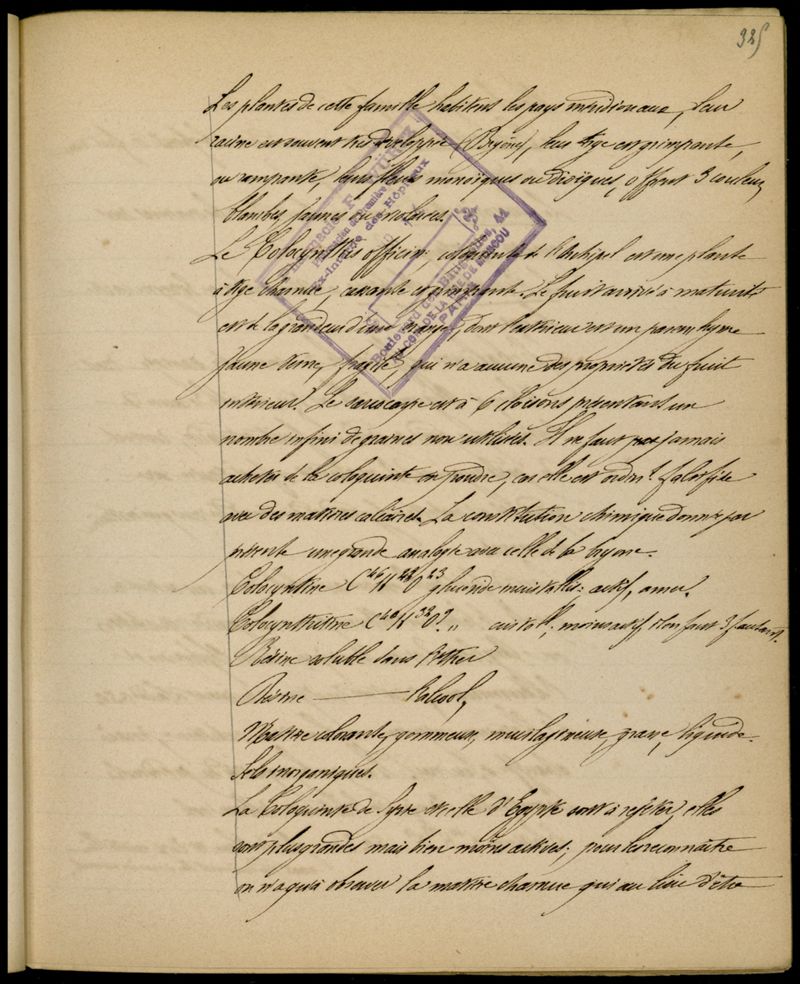 325
Les plantes de cette famille habitent les pays méridionaux, leur
racine est souvent très développée (Bryone), leur tige est grimpante,
ou rampante, leurs fleurs monoïques ou dioïques, offrent 3 couleurs,
blanches, jaunes ou violacées.
Le Colocynthis officin: coloquinte de l'Archipel est une plante
à tige charnue, cassante et grimpante. Le fruit arrivé à maturité
est de la grandeur d'une orange, dont l'extérieur est un parenchyme
jaune terne, fragile, qui n'a aucune des propriétés du fruit
intérieur. Le sarcocarpe est à 6 cloisons présentant un
nombre infini de graines non utilisées. Il ne faut jamais
acheter de la coloquinte en poudre, car elle est ordin.t falsifiée
avec des matières calcaires. La constitution chimique donnée par
présente une grande analogie avec celle de la bryone.
Colocynthine C46 H22 O23 glucoside incristallis: actif, amer.
Colocynthitine C40 H32 O9. " cristall; moins actif, il en faut 3 f. autant.
Résine soluble dans l'éther
Résine ——— l'alcool,
Matière colorante, gommeuse, mucilagineuse, grasse, liquide.
Sels inorganiques.
La Coloquinte de Syrie et celle d'Egypte sont à rejeter, elles
sont plus grandes mais bien moins actives; pour les reconnaître
on n'a qu'à observer la matière charnue qui au lieu d'être
Pharmacie
Pharmacien de première
Ex-Interne des Hôpitaux
Boulevard des Batignolles, 41
AU COIN DE LA RUE DE MOSCOU
PARIS